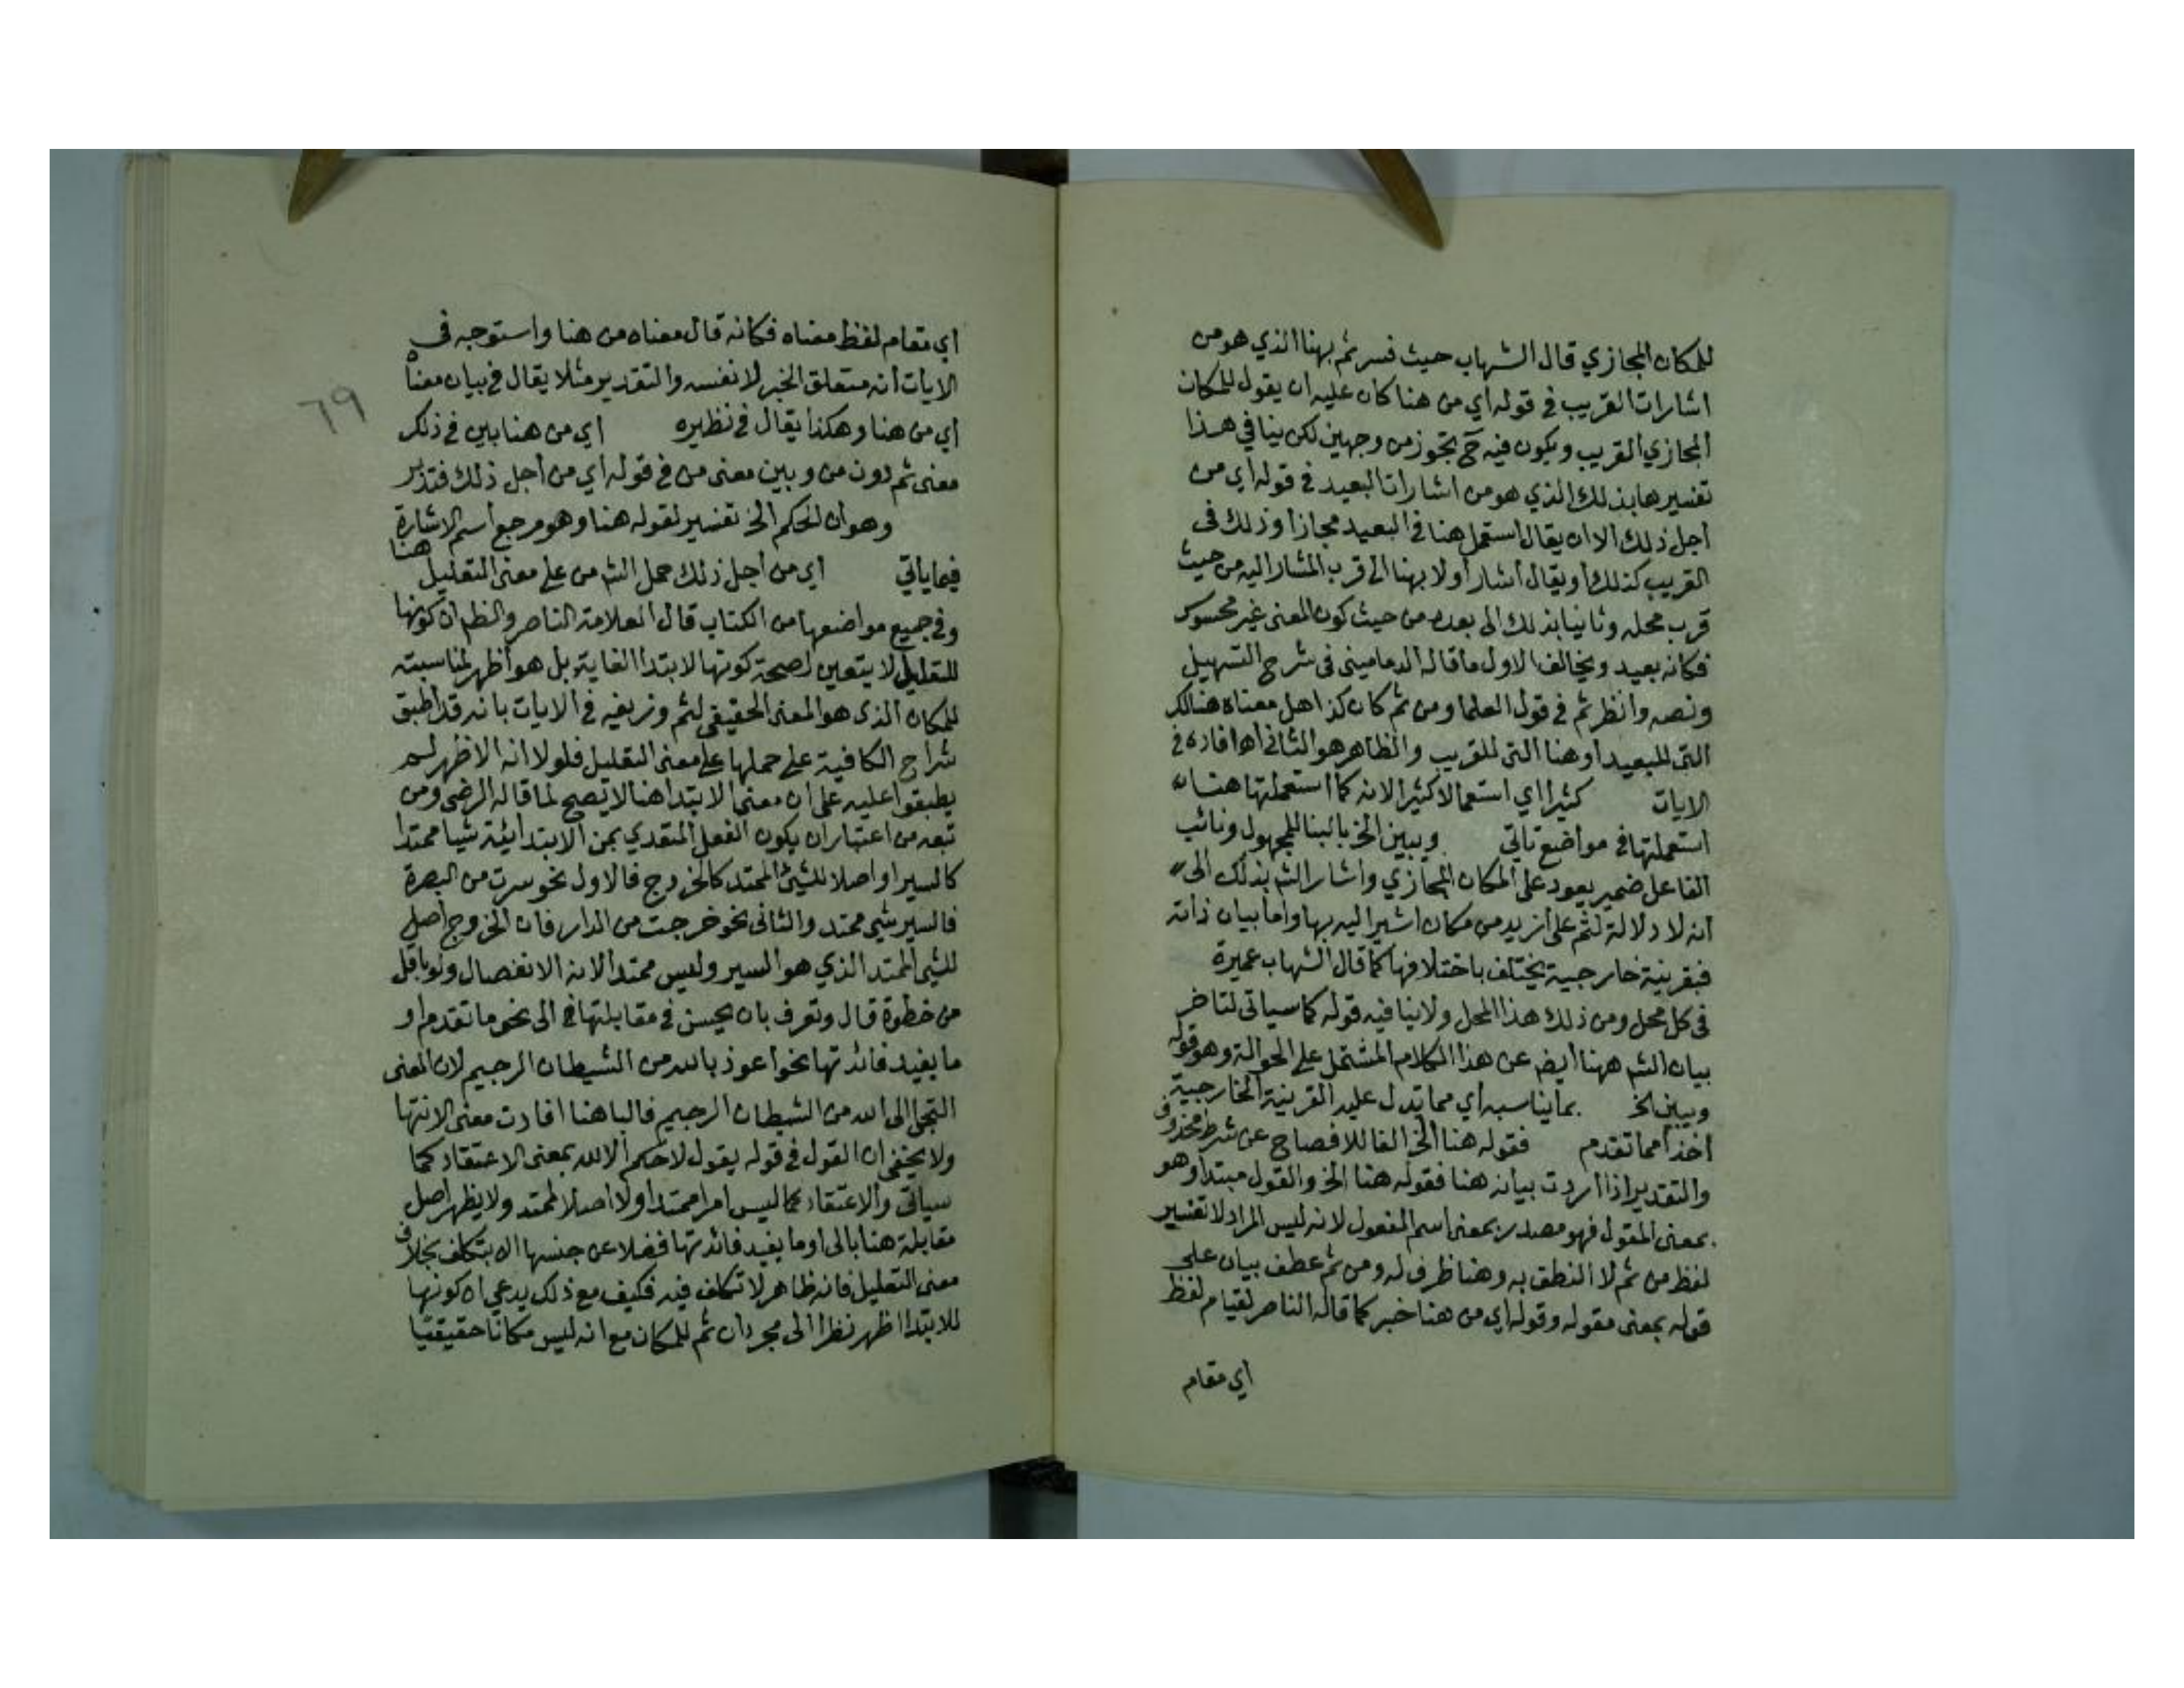 للمكان المجازي قال الشهاب حيث فسر ثم بهنا الذي هو من
اشارات القريب في قوله اي من هنا كان عليه ان يقول للمكان
المجازي القريب ويكون فيه ح تجوز من وجهين لكن ينافي هذا
تفسيرها بذلك الذي هو من اشارات البعيد في قوله اي من
اجل ذلك الا ان يقال استعمل هنا في البعيد مجازا وذلك في
القريب كذلك او يقال اشار اولا بهنا الى قرب المشار اليه من حيث
قرب محله وثانيا بذلك الى بعده من حيث كون المعنى غير محسوس
فكانه بعيد ويخالف الاول ما قاله الدماميني في شرح التسهيل
ونصه وانظر ثم في قول العلما ومن ثم كان كذا هل معناه هنالك
التي للبعيد او هنا التي للقريب والظاهر هو الثاني اه افاده في
الايات كثيرا اي استعمالا كثيرا لانه كما استعملتها هنا
استعملتها في مواضع تاتي ويبين الخ بالبنا للمجهول ونائب
الفاعل ضمير يعود على المكان المجازي واشار الش بذلك الى
انه لا دلالة لثم على ازيد من مكان اشير اليه بها واما بيان ذاته
فبقرينة خارجية يختلف باختلافها كما قال الشهاب عميرة
في كل محل ومن ذلك هذا المحل ولا ينافيه قوله كما سياتي لتاخر
بيان الش ههنا ايض عن هذا الكلام المشتمل على الحوالة وهو قوله
ويبين الخ بما يناسبه اي مما تدل عليه القرينة الخارجية
اخذا مما تقدم فقوله هنا الخ الفا للافصاح عن شرط محذوف
والتقدير اذا اردت بيانه هنا فقوله هنا الخ والقول مبتدا وهو
بمعنى المقول فهو مصدر بمعنى اسم المفعول لانه ليس المراد لا تفسير
لفظ من ثم لا النطق به وهنا ظرف له ومن ثم عطف بيان على
قوله بمعنى مقوله وقوله اي من هنا خبر كما قاله الناصر لقيام لفظ
اي مقام
اي مقام لفظ معناه فكانه قال معناه من هنا واستوجه في
الايات انه متعلق الخبر لا نفسه والتقدير مثلا يقال في بيان معناه
اي من هنا وهكذا يقال في نظيره اي من هنا بين في ذلك
معنى ثم دون من وبين معنى من في قوله اي من اجل ذلك فتدبر
وهو ان الحكم الخ تفسير لقوله هنا وهو مرجع اسم الاشارة
فيما ياتي اي من اجل ذلك حمل الش من على معنى التعليل هنا
وفي جميع مواضعها من الكتاب قال العلامة الناصر والظم ان كونها
للتعليل لا يتعين لصحة كونها لابتدا الغاية بل هو اظهر لمناسبته
للمكان الذي هو المعنى الحقيقي لثم وزيفه في الايات بانه قد اطبق
شراح الكافية على حملها على معنى التعليل فلولا انه الاظهر لم
يطبقوا عليه على ان معنى الابتدا هنا لا تصح لما قاله الرضى ومن
تبعه من اعتبار ان يكون الفعل المتعدي بمن الابتدائية شيا ممتدا
كالسير او اصلا للشئ الممتد كالخروج فالاول نحو سرت من البصرة
فالسير شي ممتد والثاني نحو خرجت من الدار فان الخروج اصل
للشي الممتد الذي هو السير وليس ممتدا لانه الانفصال ولو باقل
من خطوة قال وتعرف بان يحسن في مقابلتها في الى نحو ما تقدم او
ما يفيد فائدتها نحو اعوذ بالله من الشيطان الرجيم لان المعنى
التجي الى الله من الشيطان الرجيم فالبا هنا افادت معنى الانتها
ولا يخفى ان القول في قوله يقول لا حكم الا لله بمعنى الاعتقاد كما
سياتي والاعتقاد مما ليس امرا ممتدا ولا اصلا لممتد ولا يظهر اصل
مقابلة هنا بالى او ما يفيد فائدتها فضلا عن جنسها الا بتكلف بخلاف
معنى التعليل فانه ظاهر لا تكلف فيه فكيف مع ذلك يدعي ان كونها
للابتدا اظهر نظرا الى مجرد ان ثم للمكان مع انه ليس مكانا حقيقيا
٦٩